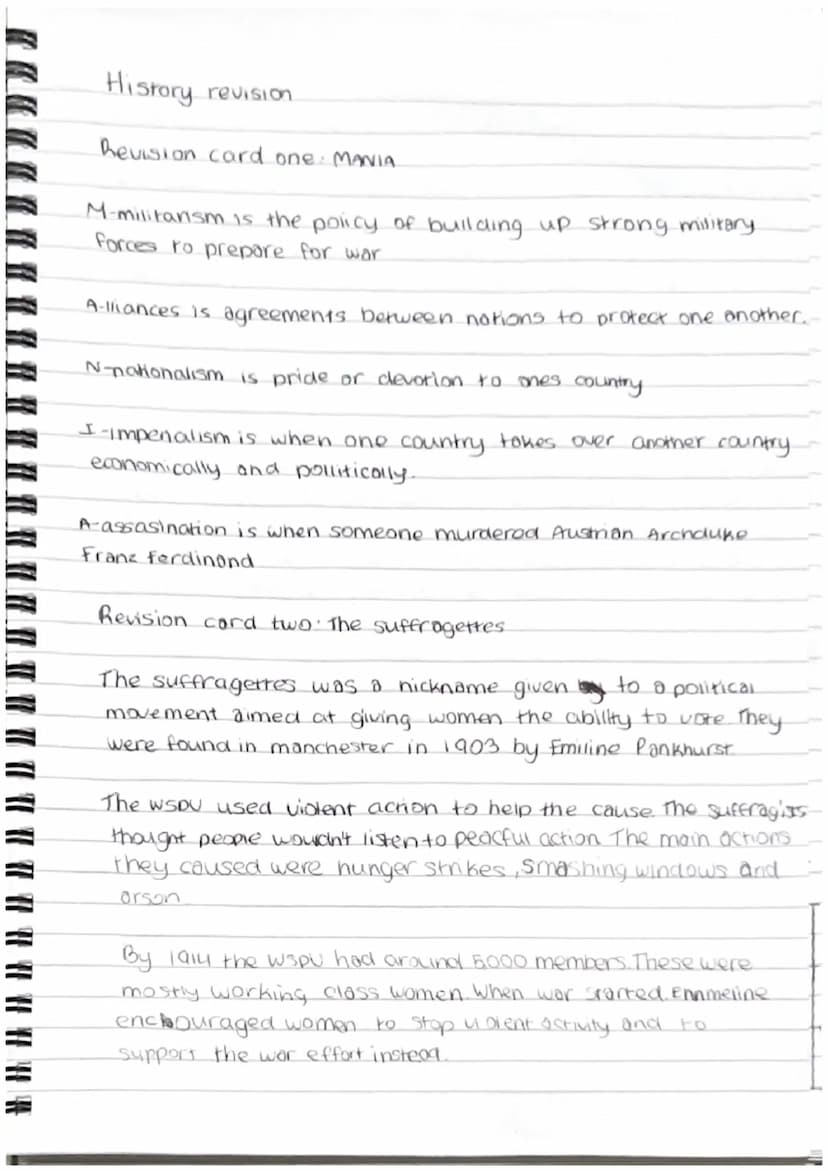 History revision
Revision card one: MANIA
M-militarism is the policy of building up strong military
forces to prepare for war
A-lliances is agreements between nations to protect one another.
N-nationalism is pride or devotion to ones country
I-imperialism is when one country takes over another country
economically and pollitically.
A-assasination is when someone murdered Austrian Archduke
Franz Ferdinand
Revision card two: The suffragettes
The suffragettes was a nickname given to a political
movement aimed at giving women the ability to vote They
were found in manchester in 1903 by Emiline Pankhurst
The WSPU used violent action to help the cause. The suffragists
thought people wouldn't listen to peacful action The main actions
they caused were hunger strikes, smashing windows and
arson
By 1914 the WSPU had around 5000 members. These were
mostly working class women. When war started. Emmeline
encouraged women to stop violent activity and to
support the war effort instead.